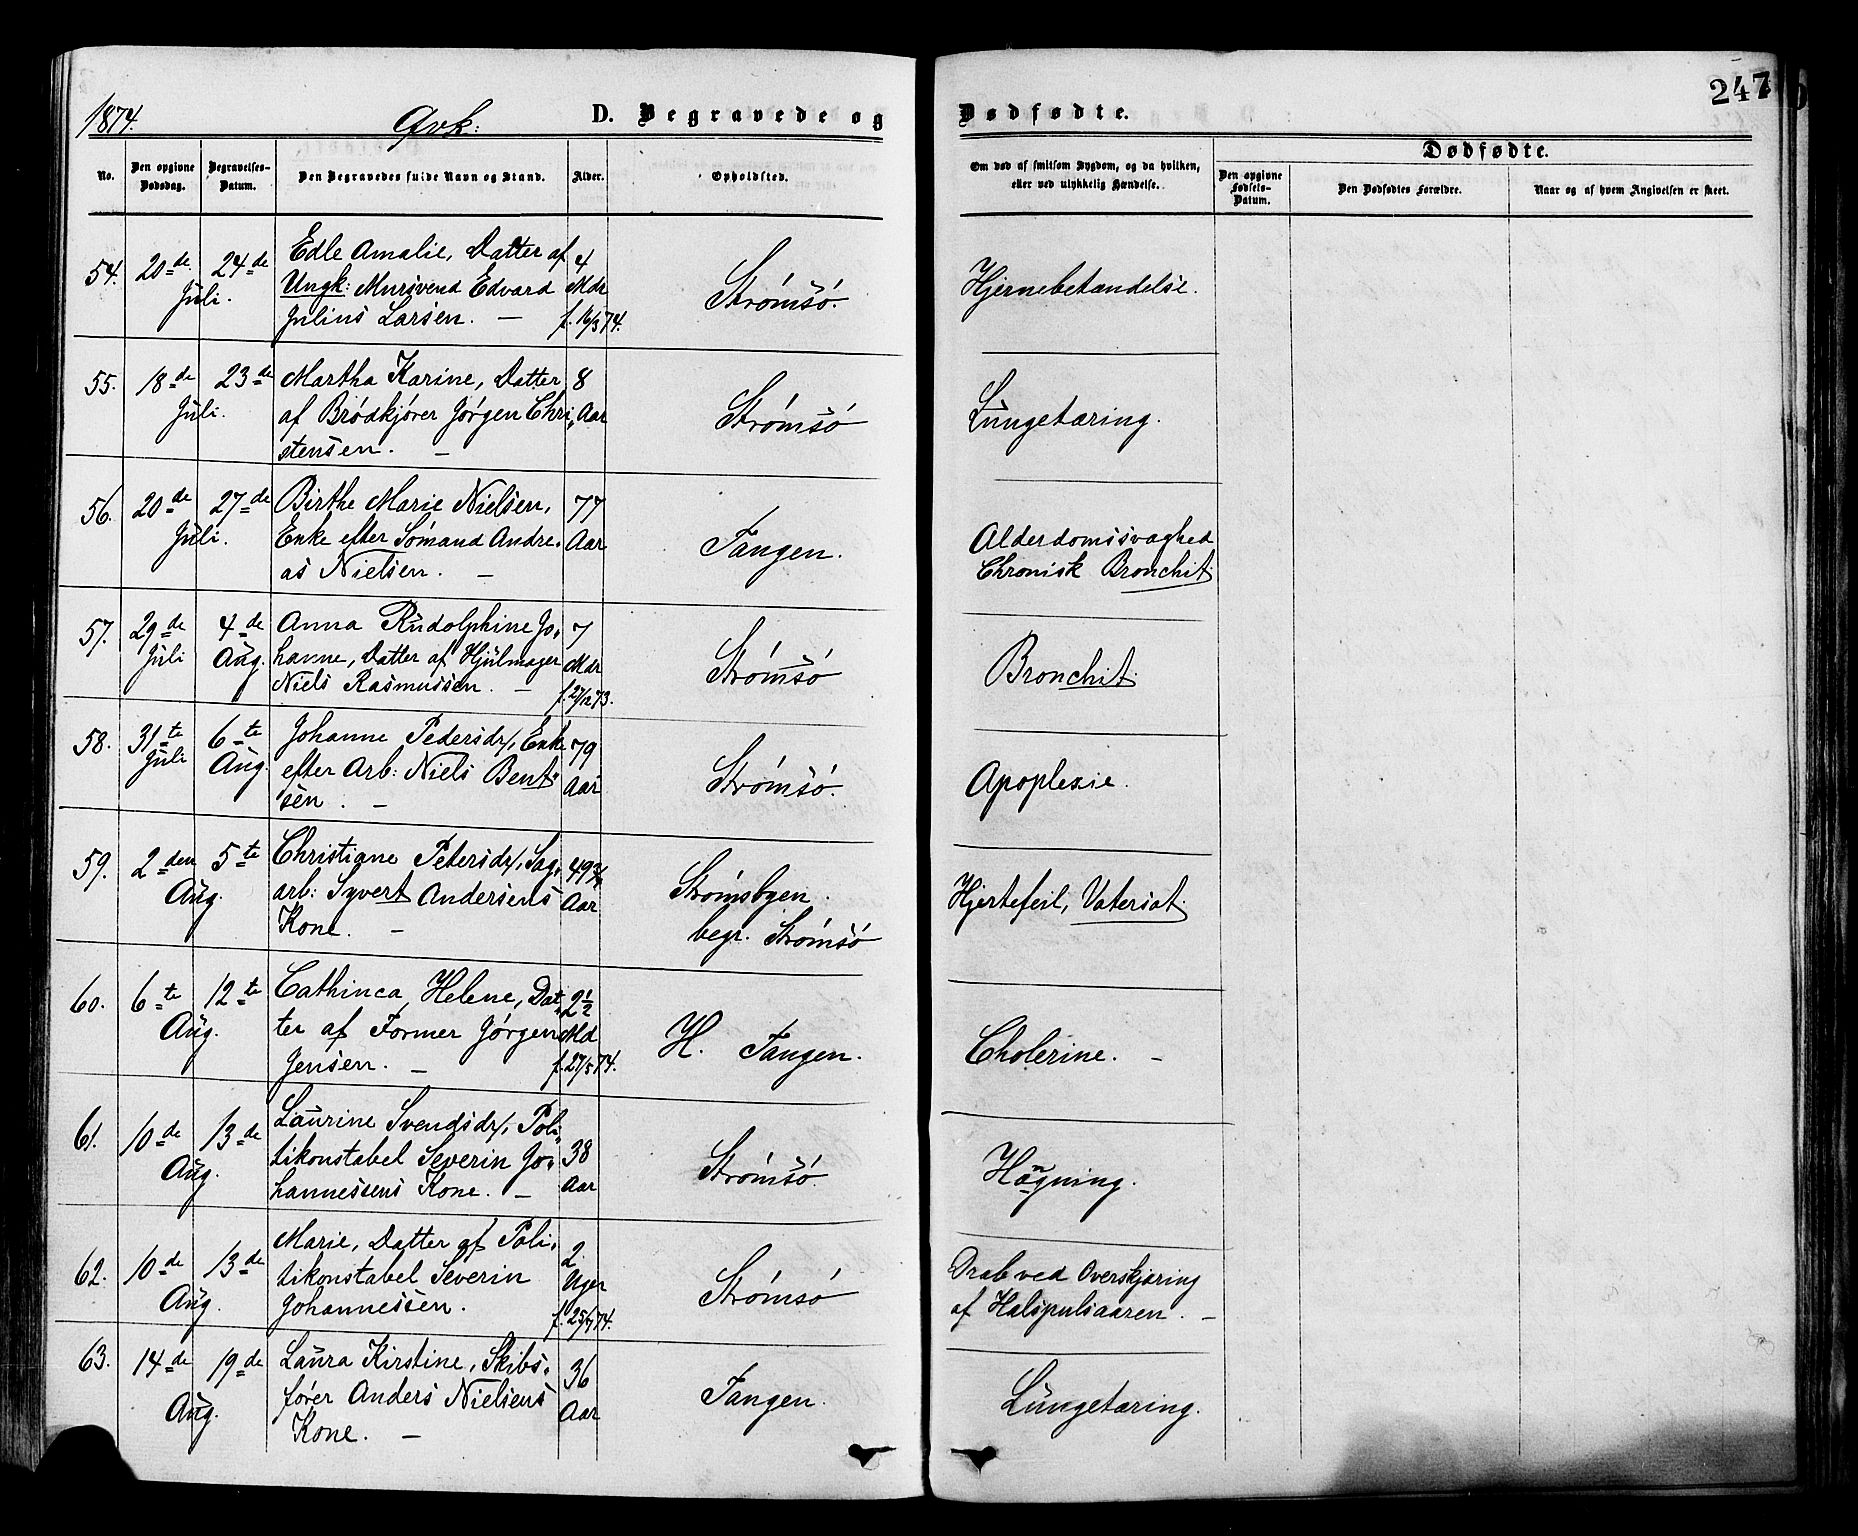 1874.
Qvk:
D. Begravede og
Dødfødte.
247
No.
Den opgivne
Dødsdag.
Begravelses-
Datum.
Den Begravedes fulde Navn og Stand.
Alder.
Opholdsted.
Om død af smitsom Sygdom, og da hvilken,
eller ved ulykkelig Hændelse.
Dødfødte.
Den opgivne
Fødsels-
Datum.
Den Dødfødtes Forældre.
Naar og af hvem Angivelsen er skeet.
54. 20de 24de
Juli.
Edle Amalie, Datter af
Ungk: Mursvend Edvard
Julius Larsen. —
4
Mdr
f. 16/3 74.
Strømsö.
Hjernebetændelse.
55. 18de 23de
Juli.
Martha Karine, Datter
af Brödkjører Jørgen Chri„
stensen. —
8
Aar
Strømsö
Lungetæring.
56. 20de 27de
Juli.
Birthe Marie Nielsen,
Enke efter Sömand Andre„
as Nielsen. —
77
Aar
Tangen.
Alderdomssvaghed
Chronisk Bronchit.
57. 29de 4de
Juli Aug.
Anna Rudolphine Jo„
hanne, Datter af Hjulmager
Niels Rasmussen. —
7
Mdr
f. 27/12 73.
Strømsö
Bronchit.
58. 31te 6te
Juli Aug.
Johanne Pedersdr, Enke
efter Arb: Niels Bent„
sen. —
79
Aar
Strømsö.
Apoplexie.
59. 2den 5te
Aug.
Christiane Petersdr, Sag„
arb: Syvert Andersens
Kone. —
49 3/4
Aar
Strömsbyen.
begr. Strømsö
Hjertefeil, Vatersot.
60. 6te 12te
Aug.
Cathinca Helene, Dat„
ter af Former Jørgen
Jensen. —
2 1/2
Md
f. 27/5 74.
H. Tangen.
Cholerine. —
61. 10de 13de
Aug.
Laurine Svendsdr, Poli„
tikonstabel Severin Jo„
hannessens Kone. —
38
Aar
Strømsö.
Hængning.
62. 10de 13de
Aug.
Marie, Datter af Poli„
tikonstabel Severin
Johannessen.
2
Uger
f. 25/7 74.
Strømsö
Drab ved Overskjæring
af Halspulsaaren. —
63. 14de 19de
Aug.
Laura Kirstine, Skibs„
fører Anders Nielsens
Kone. —
36
Aar
Tangen.
Lungetæring.